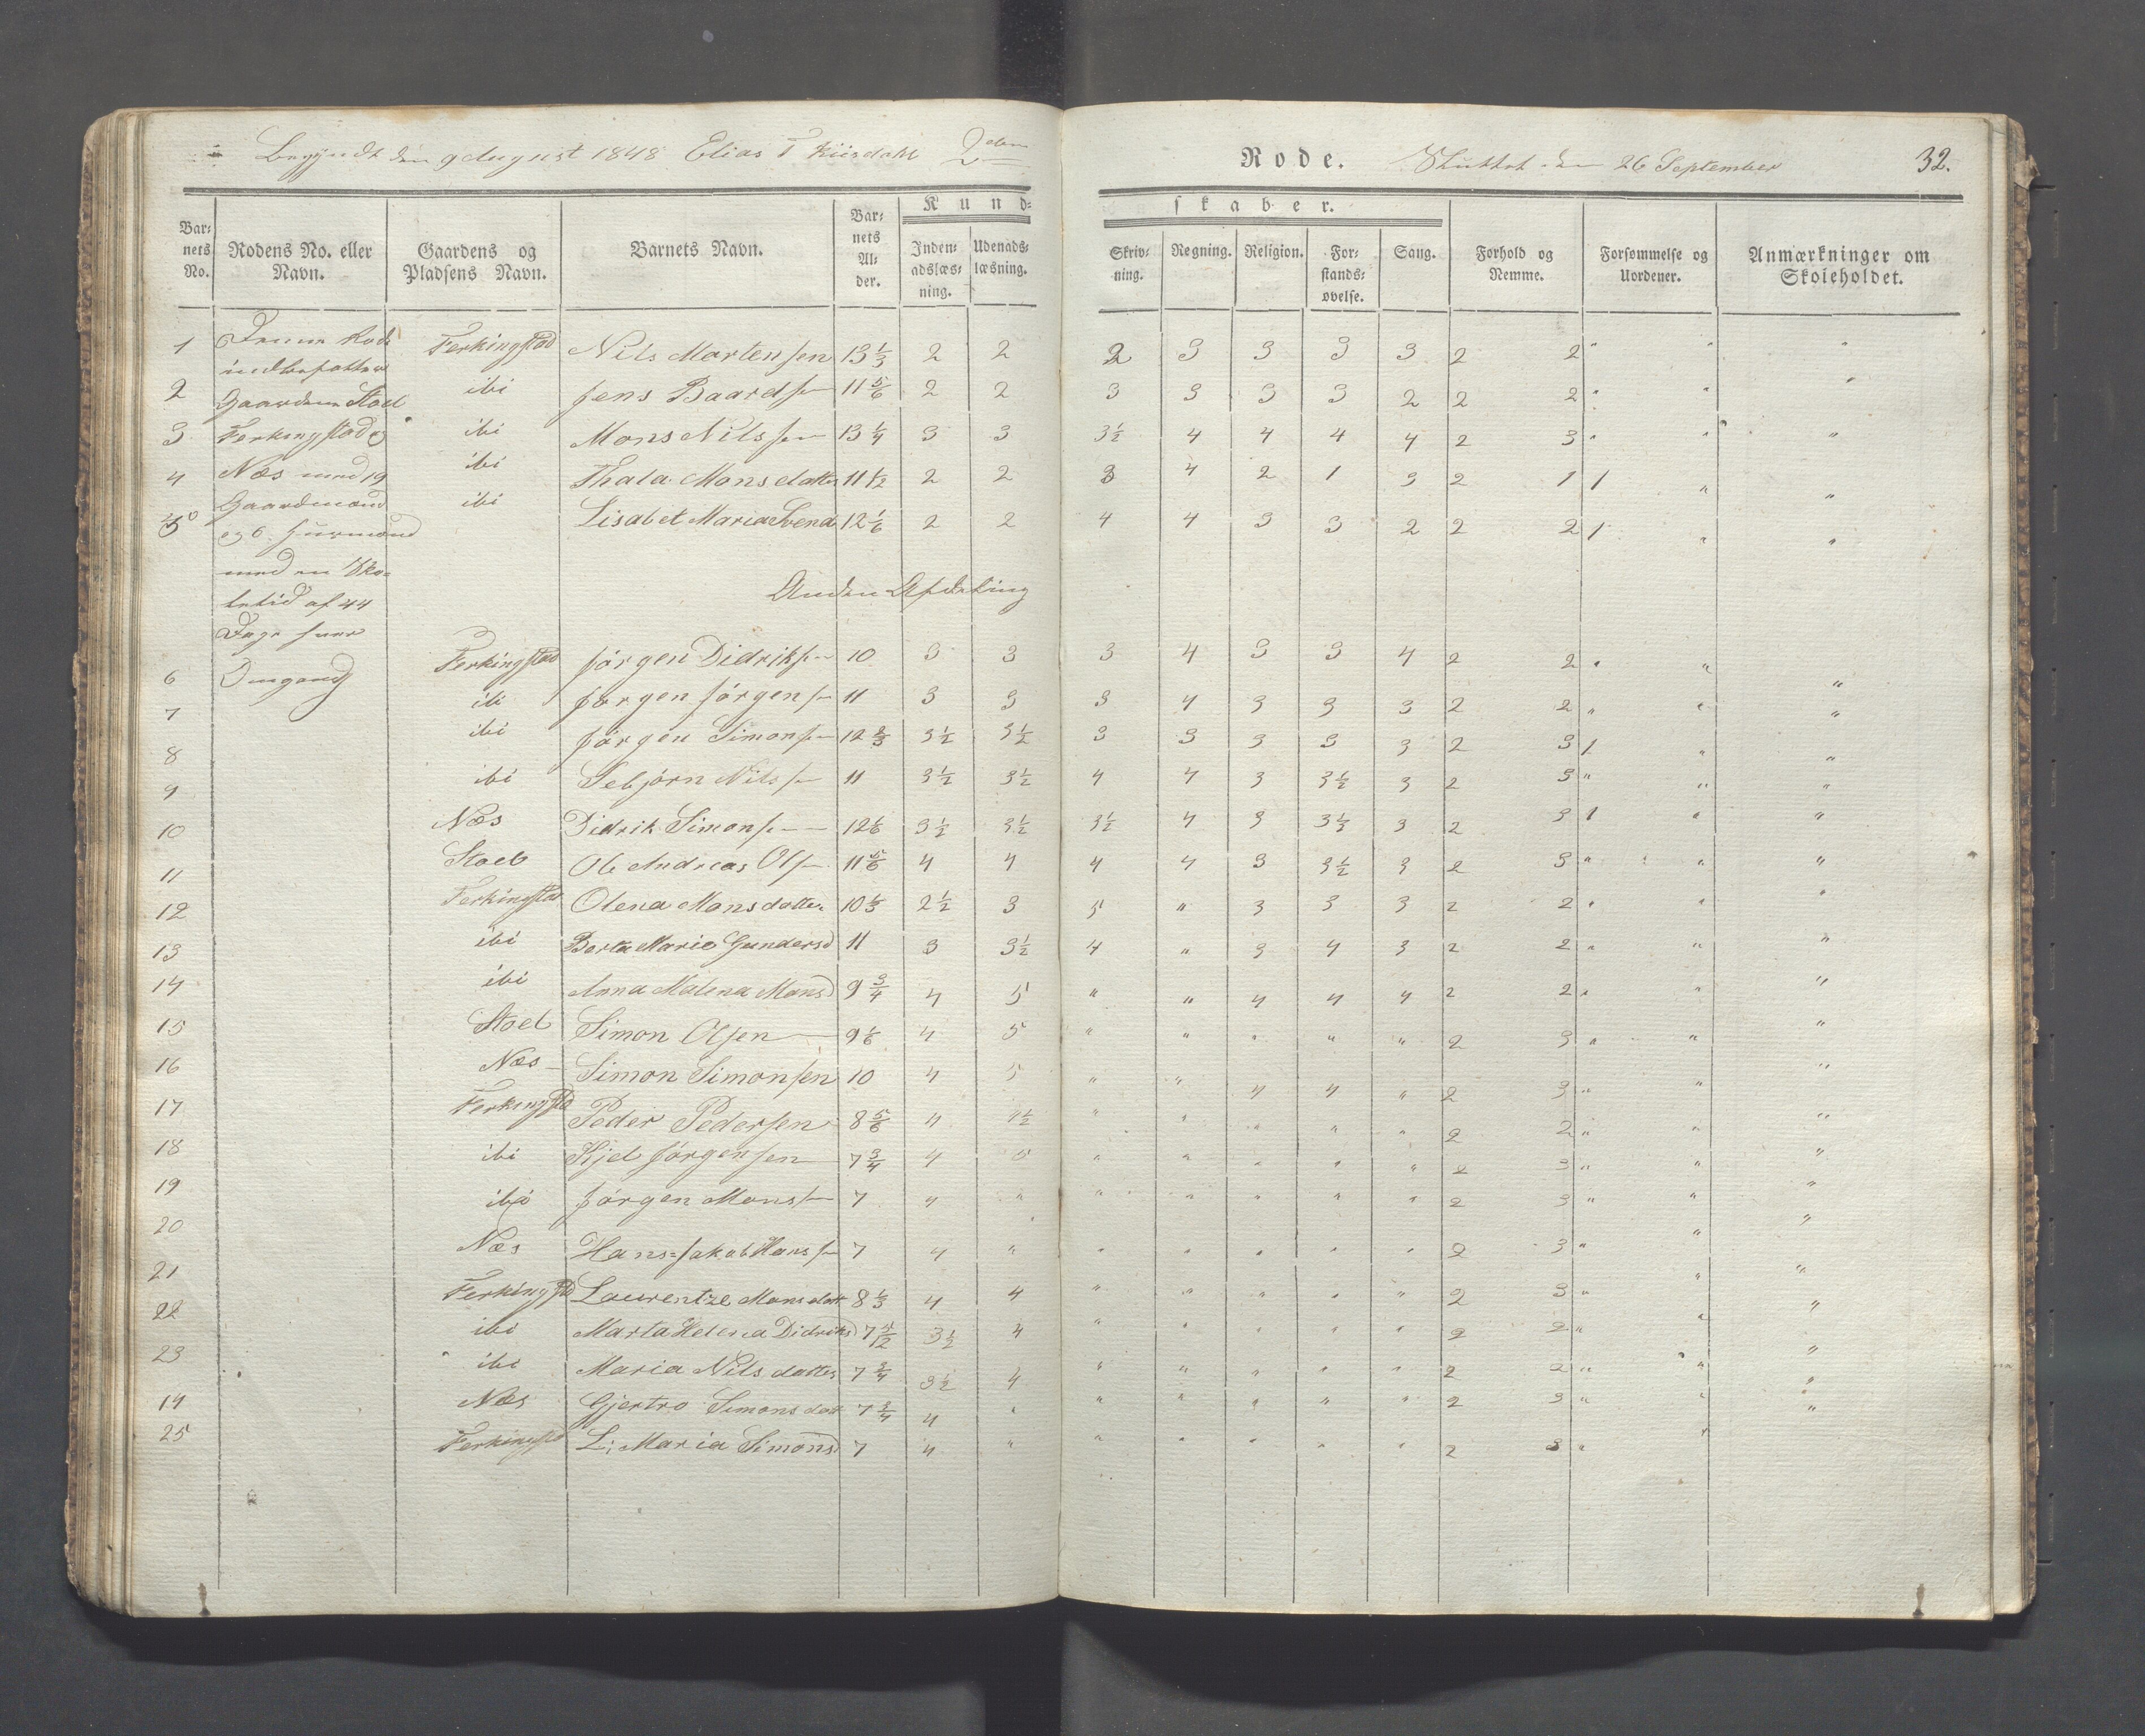 Begyndt den 9 August 1848 Elias T Kiisdahl 2den Rode. Sluttet den 26 September 32.
Kund- skaber.
Bar- nets No. Rodens No. eller Navn. Gaardens og Pladsens Navn. Barnets Navn. Bar- nets Al- der. Inden- adslæs- ning. Udenads- læsning. Skriv- ning. Regning. Religion. For- stands- øvelse. Sang. Forhold og Nemme. Forsømmelse og Uordener. Anmærkninger om Skoleholdet.
Denne Rode
indbefatter
Gaardene Stoel
Ferkingstad og
Næs med 19
Gaardmænd
og 6 Huusmænd
med en Sko-
letid af 44
Dage hver
Omgang
1 Ferkingstad Nils Martensen 13 1/3 2 2 2 3 3 3 3 2 2 " " "
2 ibi Jens Baardsen 11 5/6 2 2 3 3 3 3 2 2 2 " " "
3 ibi Mons Nilssen 13 1/4 3 3 3 1/2 4 4 4 4 2 3 " " "
4 ibi Thala Monsdatter 11 1/2 2 2 3 4 2 1 3 2 1 1 " "
5 ibi Lisabet Maria Svend 12 1/6 2 2 4 4 3 3 2 2 2 1 " "
Anden Afdeling
6 Ferkingstad Jørgen Didriksen 10 3 3 3 4 3 3 4 2 2 " " "
7 ibi Jørgen Jørgensen 11 3 3 3 4 3 3 3 2 2 " " "
8 ibi Jørgen Simonsen 12 2/3 3 1/2 3 1/2 3 3 3 3 3 2 3 1 " "
9 ibi Sebjørn Nilssen 11 3 1/2 3 1/2 4 4 3 3 1/2 3 2 3 " " "
10 Næs Didrik Simonsen 12 1/6 3 1/2 3 1/2 3 1/2 4 3 3 1/2 3 2 3 1 " "
11 Stoel Ole Andreas Olsen 11 5/6 4 4 4 4 3 3 1/2 3 2 3 " " "
12 Ferkingstad Olena Monsdatter 10 1/3 2 1/2 3 5 " 3 3 3 2 2 " " "
13 ibi Berta Marie Gundersd 11 3 3 1/2 4 " 3 4 3 2 2 " " "
14 ibi Anna Malena Monsd 9 3/4 4 5 " " 4 4 4 2 2 " " "
15 Stoel Simon Olsen 9 1/6 4 5 " " " " " 2 3 " " "
16 Næs Simon Simonsen 10 4 5 " " 4 4 " 2 3 " " "
17 Ferkingstd Peder Pedersen 8 5/6 4 4 1/2 " " " " " 2 2 " " "
18 ibi Kjel Jørgensen 7 3/4 4 5 " " " " " 2 3 " " "
19 ibi Jørgen Monssen 7 4 " " " " " " 2 3 " " "
20 Næs Hans Jakob Hanssen 7 4 " " " " " " 2 3 " " "
21 Ferkingstd Laurentze Monsdatt 8 1/3 4 4 " " " " " 2 3 " " "
22 ibi Marta Helena Didriksd 7 5/12 3 1/2 4 " " " " " 2 2 " " "
23 ibi Maria Nilsdatter 7 3/4 3 1/2 4 " " " " " 2 2 " " "
14 Næs Gjertro Simonsdatt 7 3/4 4 " " " " " " 2 3 " " "
25 Ferkingstd L: Maria Simonsd 7 4 " " " " " " 2 3 " "